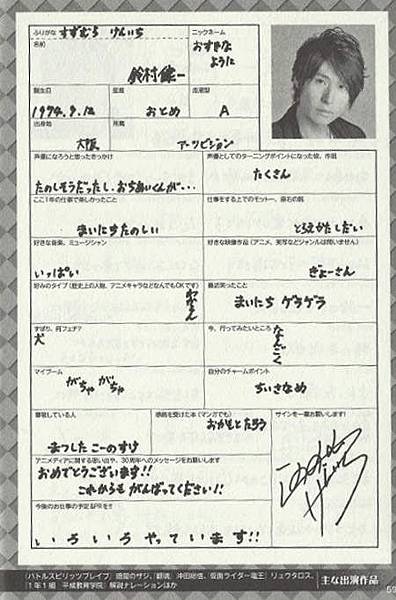 ふりがな すずむら けんいち
ニックネーム
名前
鈴村健一
おすきな
ように
誕生日
星座
血液型
1974.9.12
おとめ
A
出身地
所属
大阪
アーツビジョン
声優になろうと思ったきっかけ
声優としてのターニングポイントになった役、作品
たのしそうだったし、おちあいくんが…
たくさん
ここ1年の仕事で楽しかったこと
仕事をする上でのモットー、座右の銘
まいにちたのしい
とらえかたしだい
好きな音楽、ミュージシャン
好きな映像作品（アニメ、実写などジャンルは問いません）
いっぱい
きょーさん
好みのタイプ（歴史上の人物、アニメキャラなどなんでもOKです）
最近笑ったこと
まいにち ゲラゲラ
ずばり、何フェチ？
今、行ってみたいところ
犬
マイブーム
自分のチャームポイント
がちゃ がちゃ
ちいさなめ
尊敬している人
感銘を受けた本（マンガでも）
サインを一筆お願いします！
おかもとたろう
まつした こーのすけ
アニメディアに関する思い出や、30周年へのメッセージをお願いします
おめでとうございます!!
これからも がんばってください!!
今後のお仕事の予定&PRを!!
いろいろやっています!!
『バトルスピリッツブレイヴ』
『銀魂』沖田総悟、『仮面ライダー電王』リュウタロス、
『1年1組 平成教育学院』解説ナレーションほか
主な出演作品